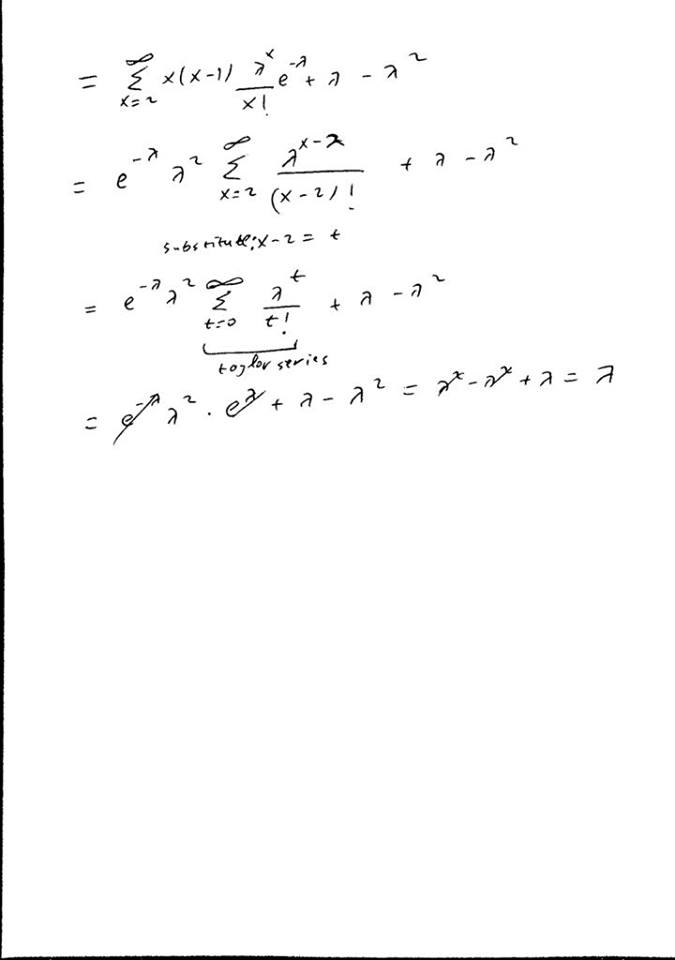 = ∑_{x=2}^{∞} x(x-1) \frac{λ^x}{x!} e^{-λ} + λ - λ^2
= e^{-λ} λ^2 ∑_{x=2}^{∞} \frac{λ^{x-2}}{(x-2)!} + λ - λ^2
substitute: x-2 = t
= e^{-λ} λ^2 ∑_{t=0}^{∞} \frac{λ^t}{t!} + λ - λ^2
taylor series
= e^{-λ} λ^2 · e^{λ} + λ - λ^2 = λ^2 - λ^2 + λ = λ